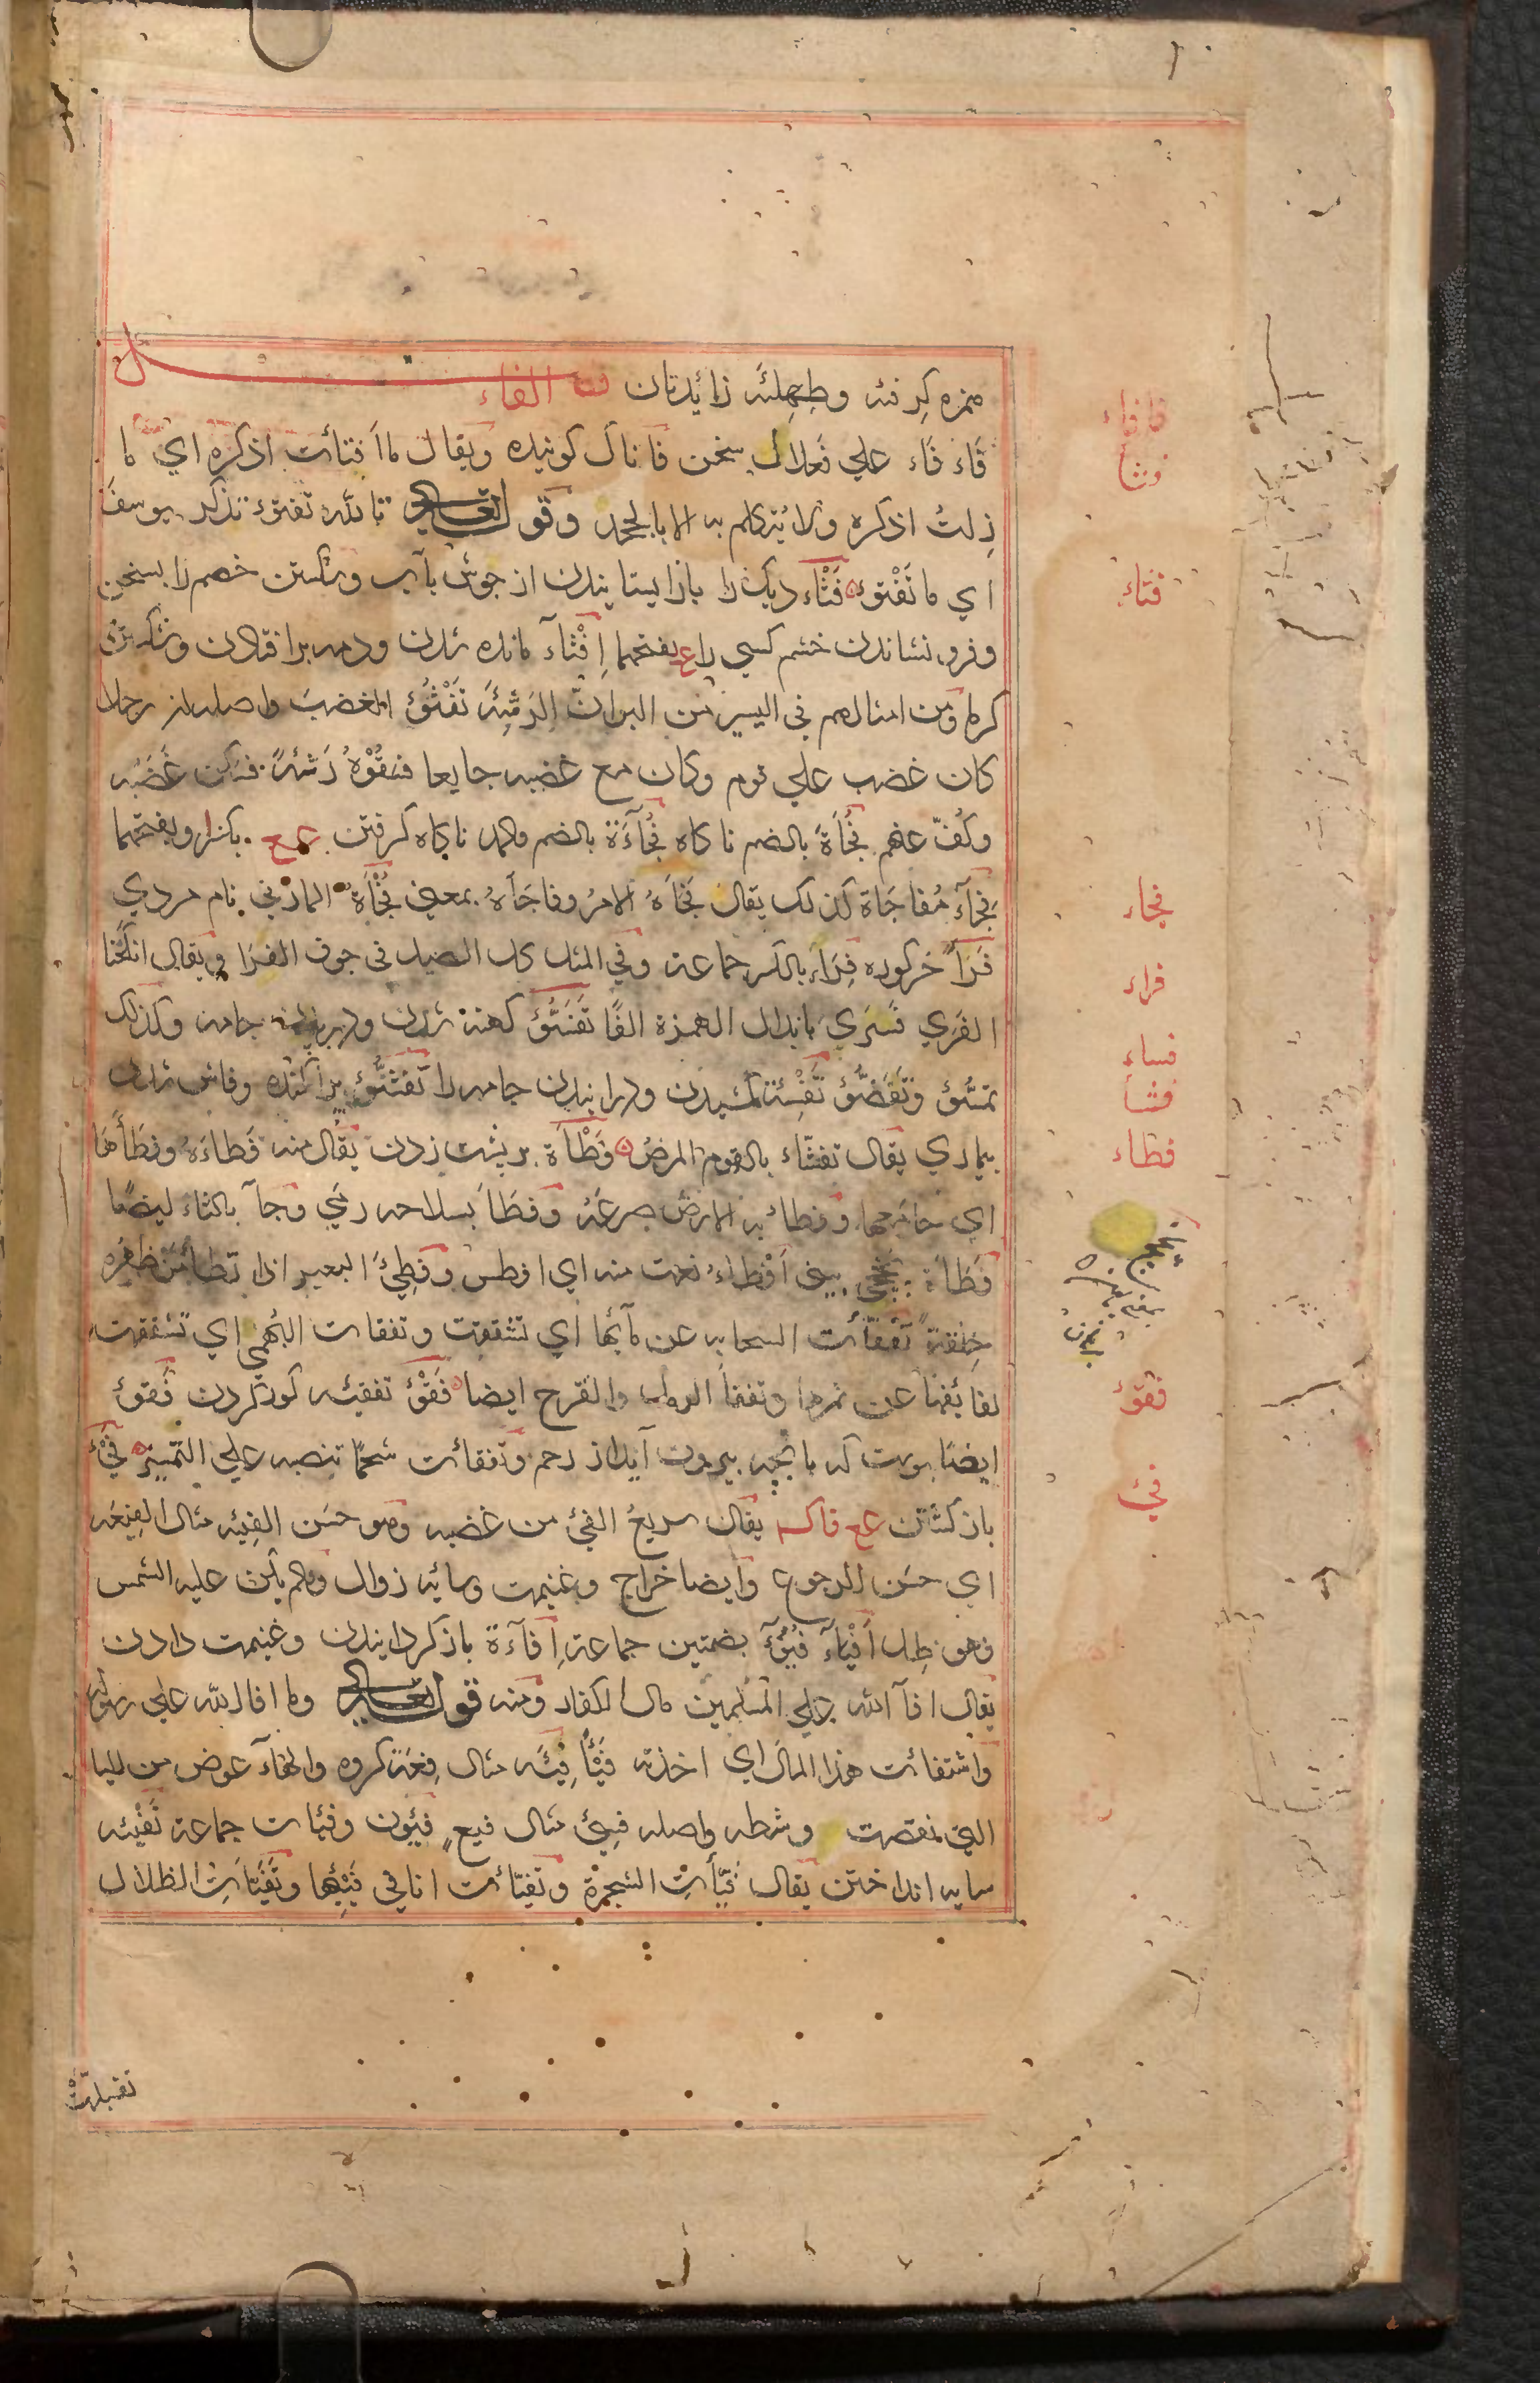 همزه كِرفئه وطِهلئَه زائدتان فصل الفاء
فَاء فَاء علي فَعلال سخن فا ناك كوينده ويقال ماافتائت اذكره اي ما
زِلتُ اذكره ولا يُتكلم به الا بالجحد وقوله تعالي تالله تفتؤ تذكر يوسفَ
اي ما تَفْتؤ فَثْاء ديك را باز ايستانيدن از جوش بآب وشكستن خصم را بسخن
وفرو نشاندن خشم كسي را ع بفتحهما اِفْثآء مانده شدن ودمه برافتادن وشكستن
كرما ومن امثالهم في اليسير من البر ان الرَثيئَه تَفْثَؤُ الغضبَ واصله ان رجلا
كان غضب علي قوم وكان مع غضبه جايعا فسَقَوْهُ رَثئةً فسكن غَضَبُه
وكُفّ عنهم فُجْأَةً بالضم ناكاه فُجَآءَة بالضم والمد ناكاه كرفتن ع ع بكسرا وبفتحهما
فِجآء مُفاجَاة كذلك يقال فَجَأهُ الامرُ وفاجَأهُ بمعني فُجْأَة المازني نام مردي
فَرَأ خركوره فِرَاء بالكسر جماعة وفي المثل كل الصيد في جوف الفرا ويقال انكحنا
الفَري فسَنَري بابدال الهمزة الفًا تَفَسُّؤ كهنه شدن ودريدن جامه وكذلك
تمسُّؤ وتَقَضُّؤ تَفْسِئَة كشيدن ودرانيدن جامه را تَفَشُّؤ پراكنده وفاش شدن
بيماري يقال تفشّاء بالقوم المرضُ فَطْأَة بر پشت زدن يقال منه فَطاءَهُ وفَطأَها
اي جامعها وفطاء به الارض صرعَهُ وفَطَأ بسلاحه رمي وجآ بالثاء ايضًا
فَطَأَة بيني اَفْطاءُ نعت منه اي افطس وفَطِيئَ البعير اذا تطامَنَ ظهره
خِلْقَةً تَفَقَّأت السحابه عن مآئها اي تشققت وتفقات البُهمي اي تشققت
لفائفها عن ثمرها وتفقأ الدمل والقرح ايضا فَقْؤ تفقئه كور كردن فَقؤ
ايضًا پوست كه با بچه بيرون آيد از رحم وتفقائت شحمًا تنصبه علي التمييز فَيْء
باز كشتن ع ع فاكه يقال سريعُ الفئ من غضبه وهو حسَن الفِيئه مثال الفِيعَه
اي حسَن الرجوع وايضا خراج وغنيمت وسايه زوال ومالم يكن عليه الشمس
فهو ظِل اَفْيَاءُ فُيُوْء بضمتين جماعة اِفآءَة باز كردانيدن وغنيمت دادن
يقال افآ الله علي المسلمين مال الكفار ومنه قوله تعالي وما افا الله علي رسوله
واستفائت هذا المال اي اخذته فَيْأً فِئَه مثال فِعَة كروه والهآء عوض من اليا
التي نقصت وسطه واصله فيئ مثال فيعٍ فئِون وفئات جماعة تَفْيئه
سايه انداختن يقال فَيّأتِ الشجرة وتفيّأت انا في فَيْئِها وتَفَيَّأتِ الظلال
تقبلت
فافاء
فثأ
فثاء
فجاء
فراء
فساء
فشأ
فطاء
فقؤ
فئ